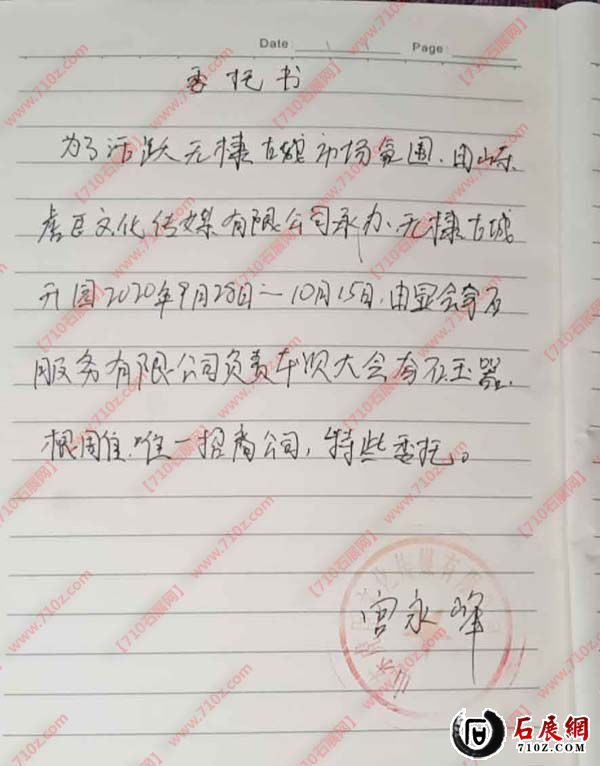 Date: Page:
委托书
为了活跃无棣古城市场氛围.由山东
文化传媒有限公司承办.无棣古城
开园2020年9月28日—10月15日.由显会奇石
服务有限公司负责本次大会奇石.玉器.
根雕唯一招商公司,特些委托。
宫永峰
文化传媒有限
石展網
710z.com
【710石展网】
www.710z.com